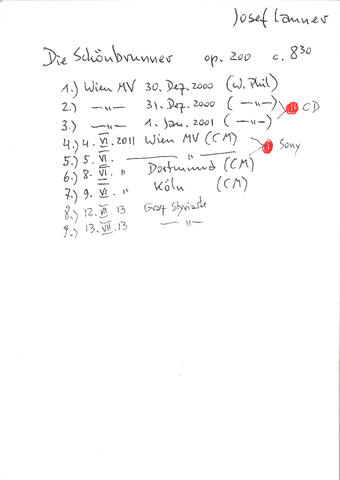 Josef Lanner
Die Schönbrunner op. 200 c. 8'30
1.) Wien MV 30. Dez. 2000 (W. Phil)
2.) —"— 31. Dez. 2000 (—"—)
3.) —"— 1. Jan. 2001 (—"—) CD
4.) 4. VI. 2011 Wien MV (CM)
5.) 5. VI. —"— Sony
6.) 8. VI. " Dortmund (CM)
7.) 9. VI. " Köln (CM)
8.) 12. VII. 13 Graz Styriarte
9.) 13. VII. 13 —"—